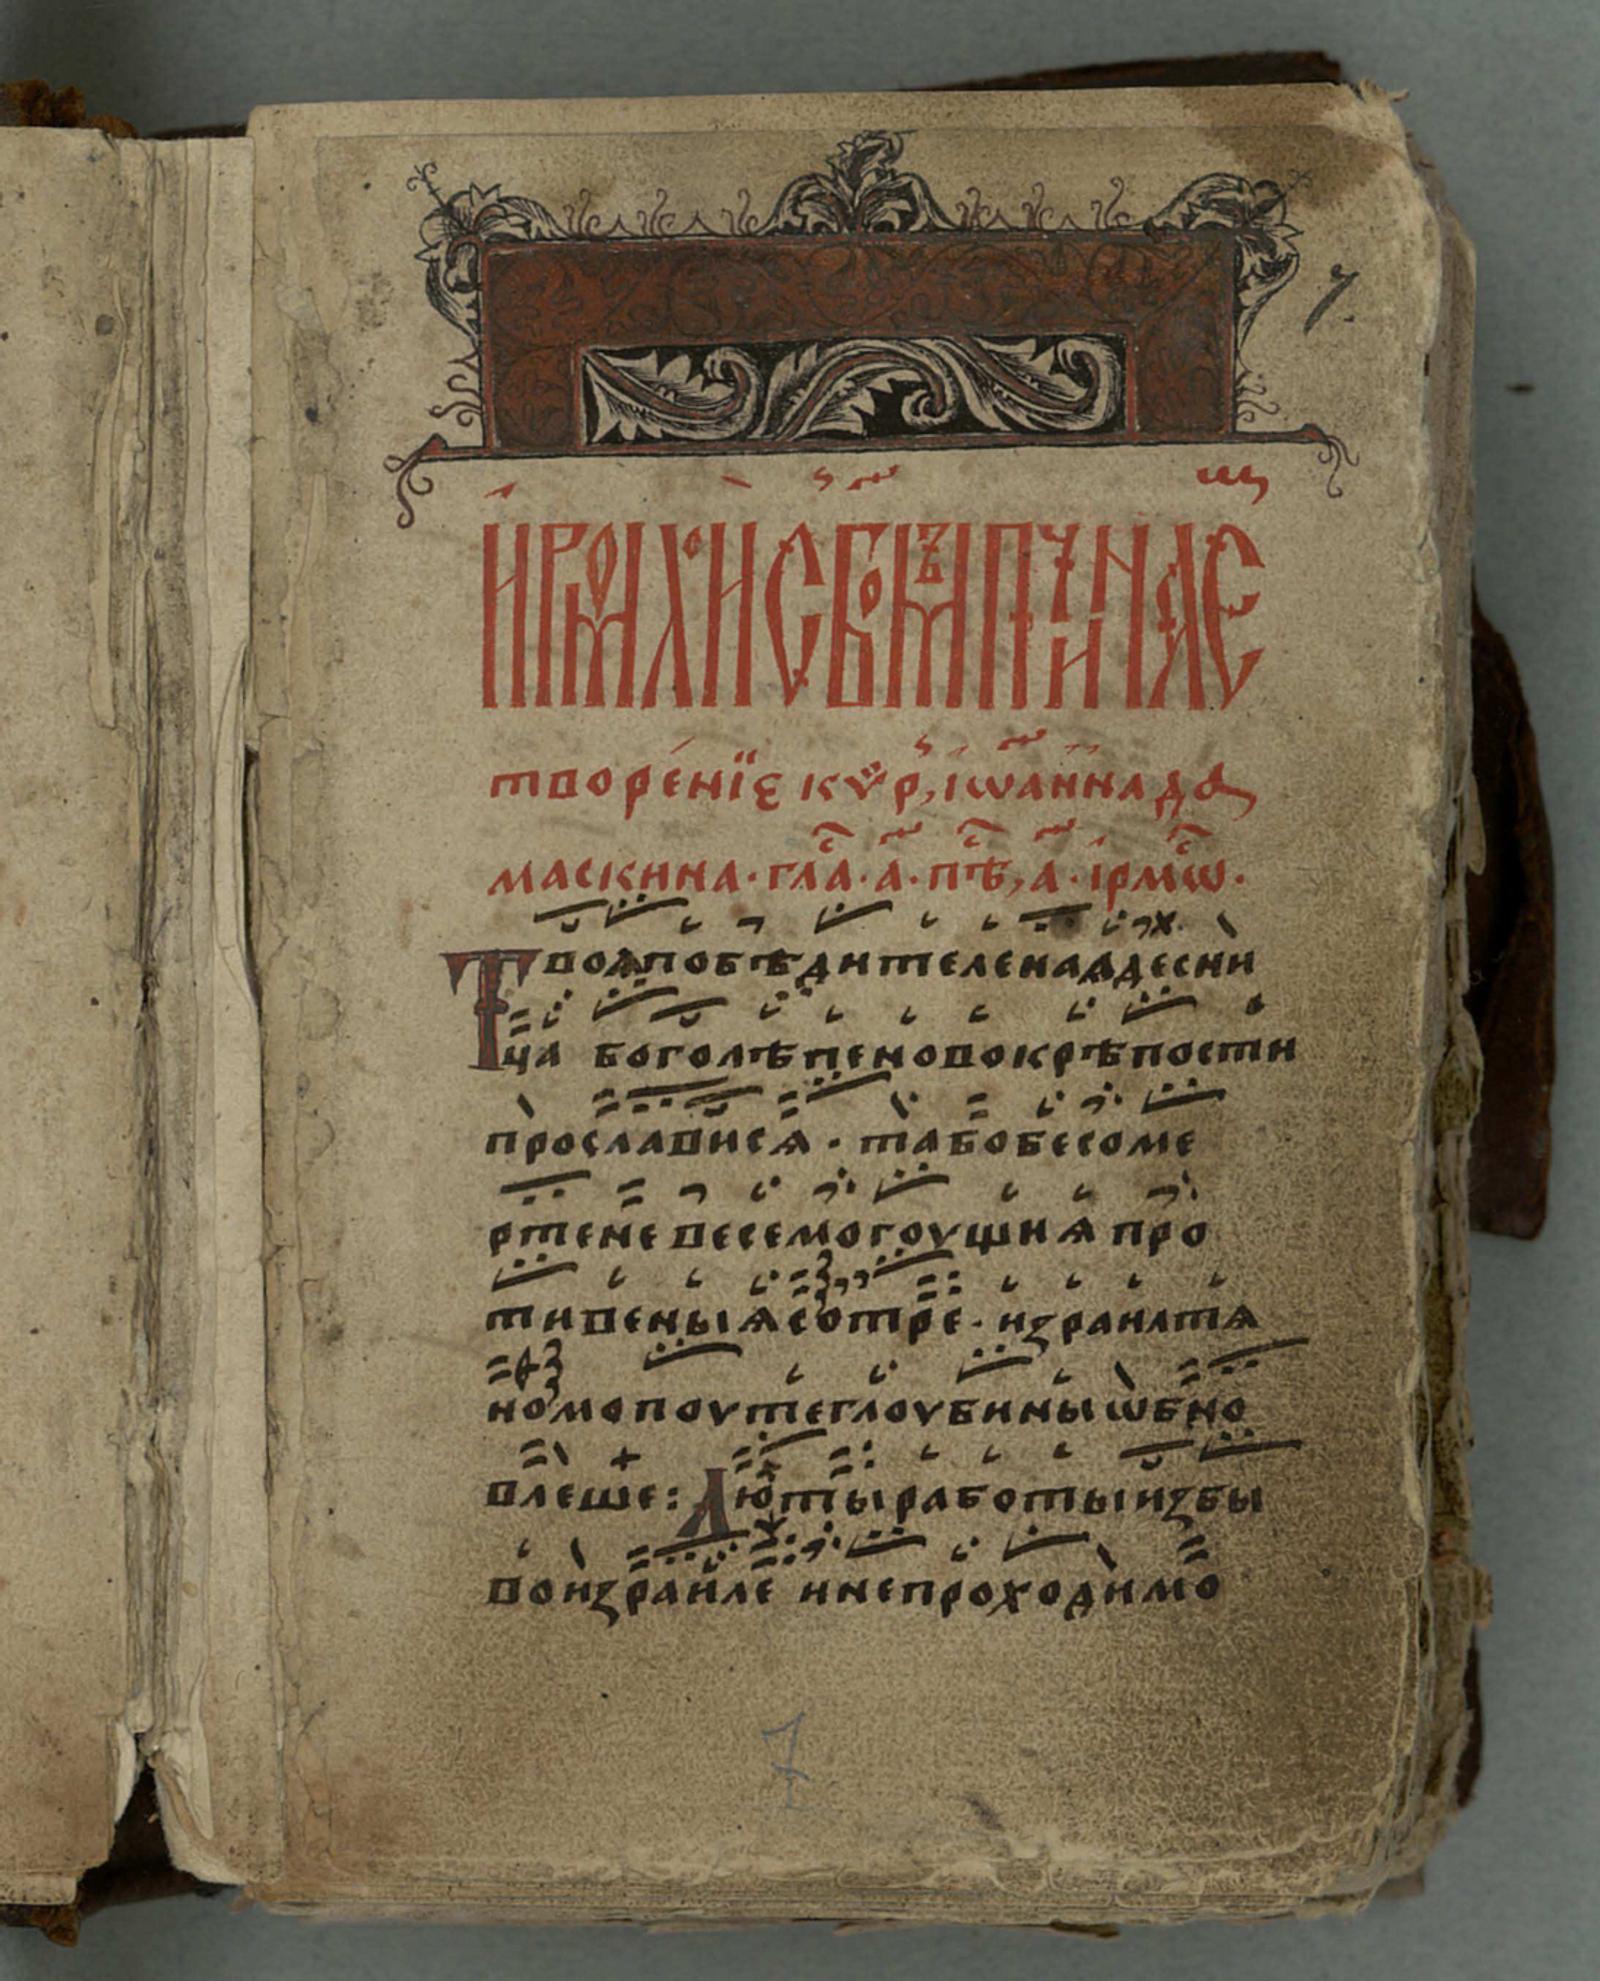 7.
творе́нїе кѷр, іѡанна да
маскина· гла́с· а҃· пѣ́с, а҃· ірмо́с·
Твоя побѣдителеная десни
ца боголѣпеновокрѣпости
прославися · та бо бесоме
ртене весемогоущия про
тивеныя сотре · израилтя
номо поуте глоубины ѡбно
влеше: Лютыработыизбы
во израиле и непроходимо
7